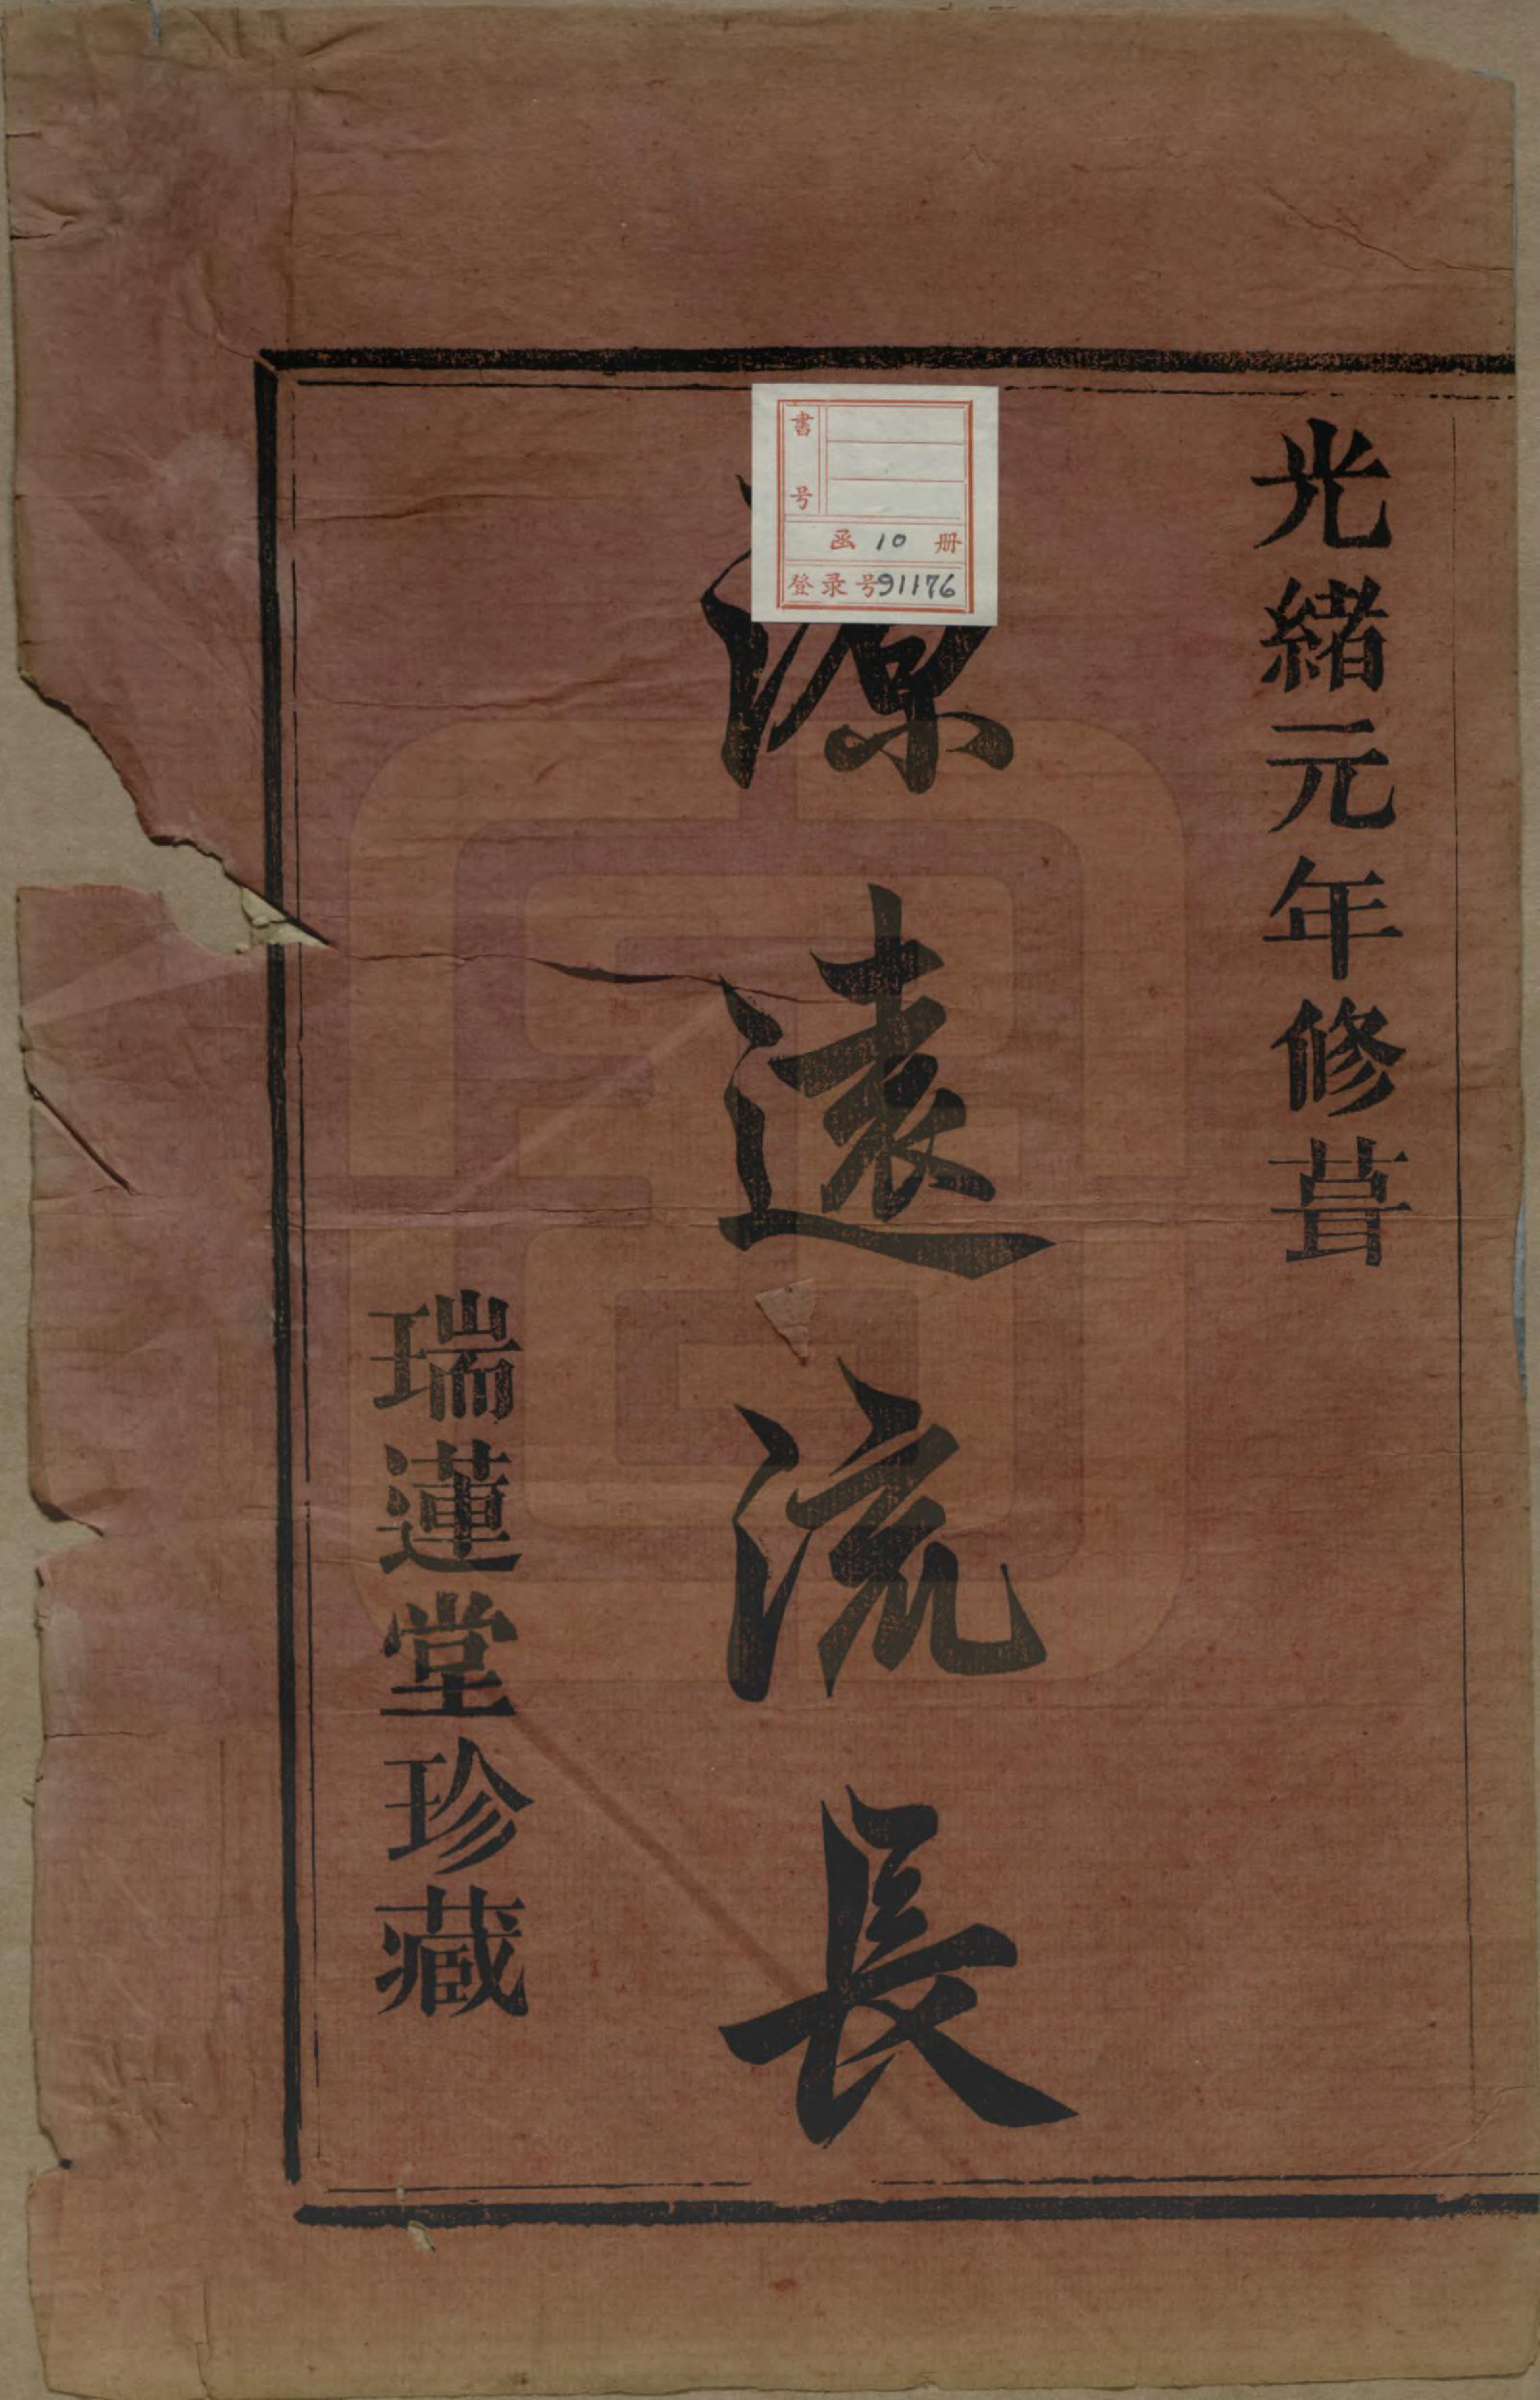 光緒元年修葺
源遠流長
瑞蓮堂珍藏
書号
函 10 册
登录号91176